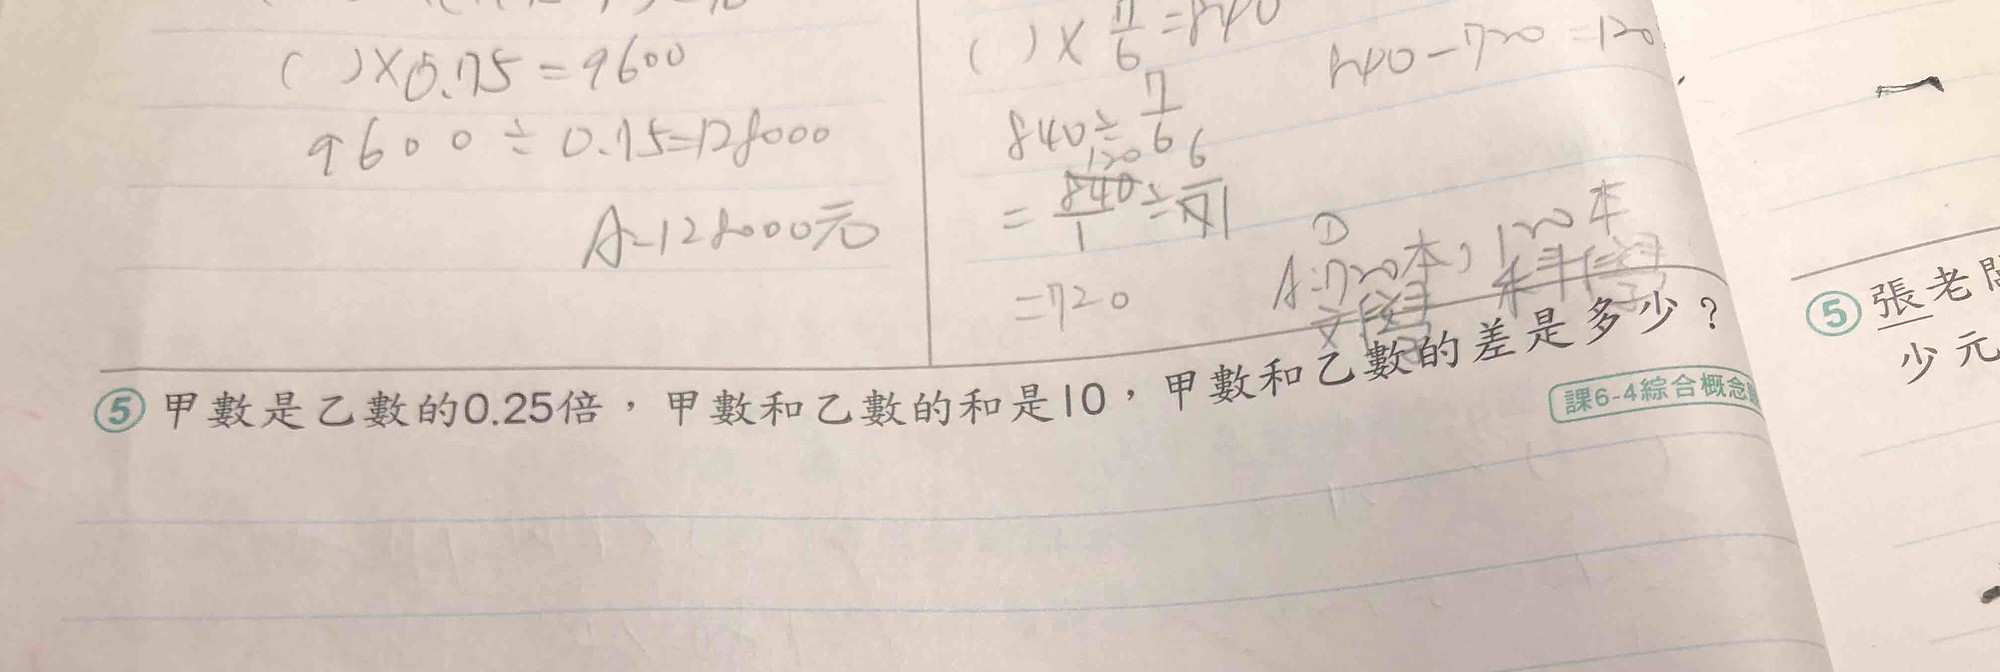 ( )×0.75=9600
9600÷0.75=128000
A:128000元
( )×7/6=840
840-720=120
840÷7/6
120 6
=840/1÷7 1
=720
A:720本, 120本
文學 科學
⑤甲數是乙數的0.25倍，甲數和乙數的和是10，甲數和乙數的差是多少？
課6-4綜合概念
⑤張老
少元